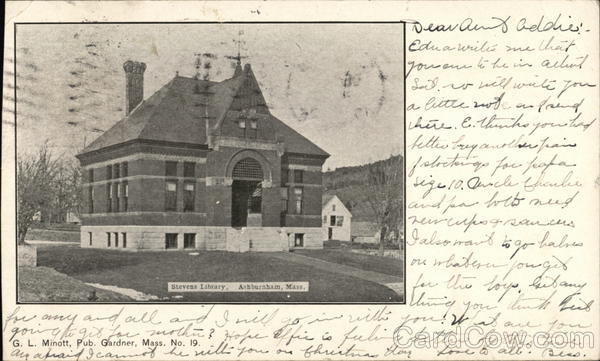 Dear Aunt Addie:-
Edna writes me that
you are to be in Athol
Sat. so will write you
a little note and send
there. E. thinks you had
better buy another pair
of stockings for papa
size 10. Uncle Charlie
and pa both need
new cups & saucers
I also want to go halves
on whatever you get
for the boys. Get any
thing you think best
for any and all and I will go in with you. What are you
going to get for mother? Hope Effie is
Am afraid I cannot be with you on Christmas day Love to all. Bess.
Stevens Library, Ashburnham, Mass.
G. L. Minott, Pub. Gardner, Mass. No. 19.
CardCow.com